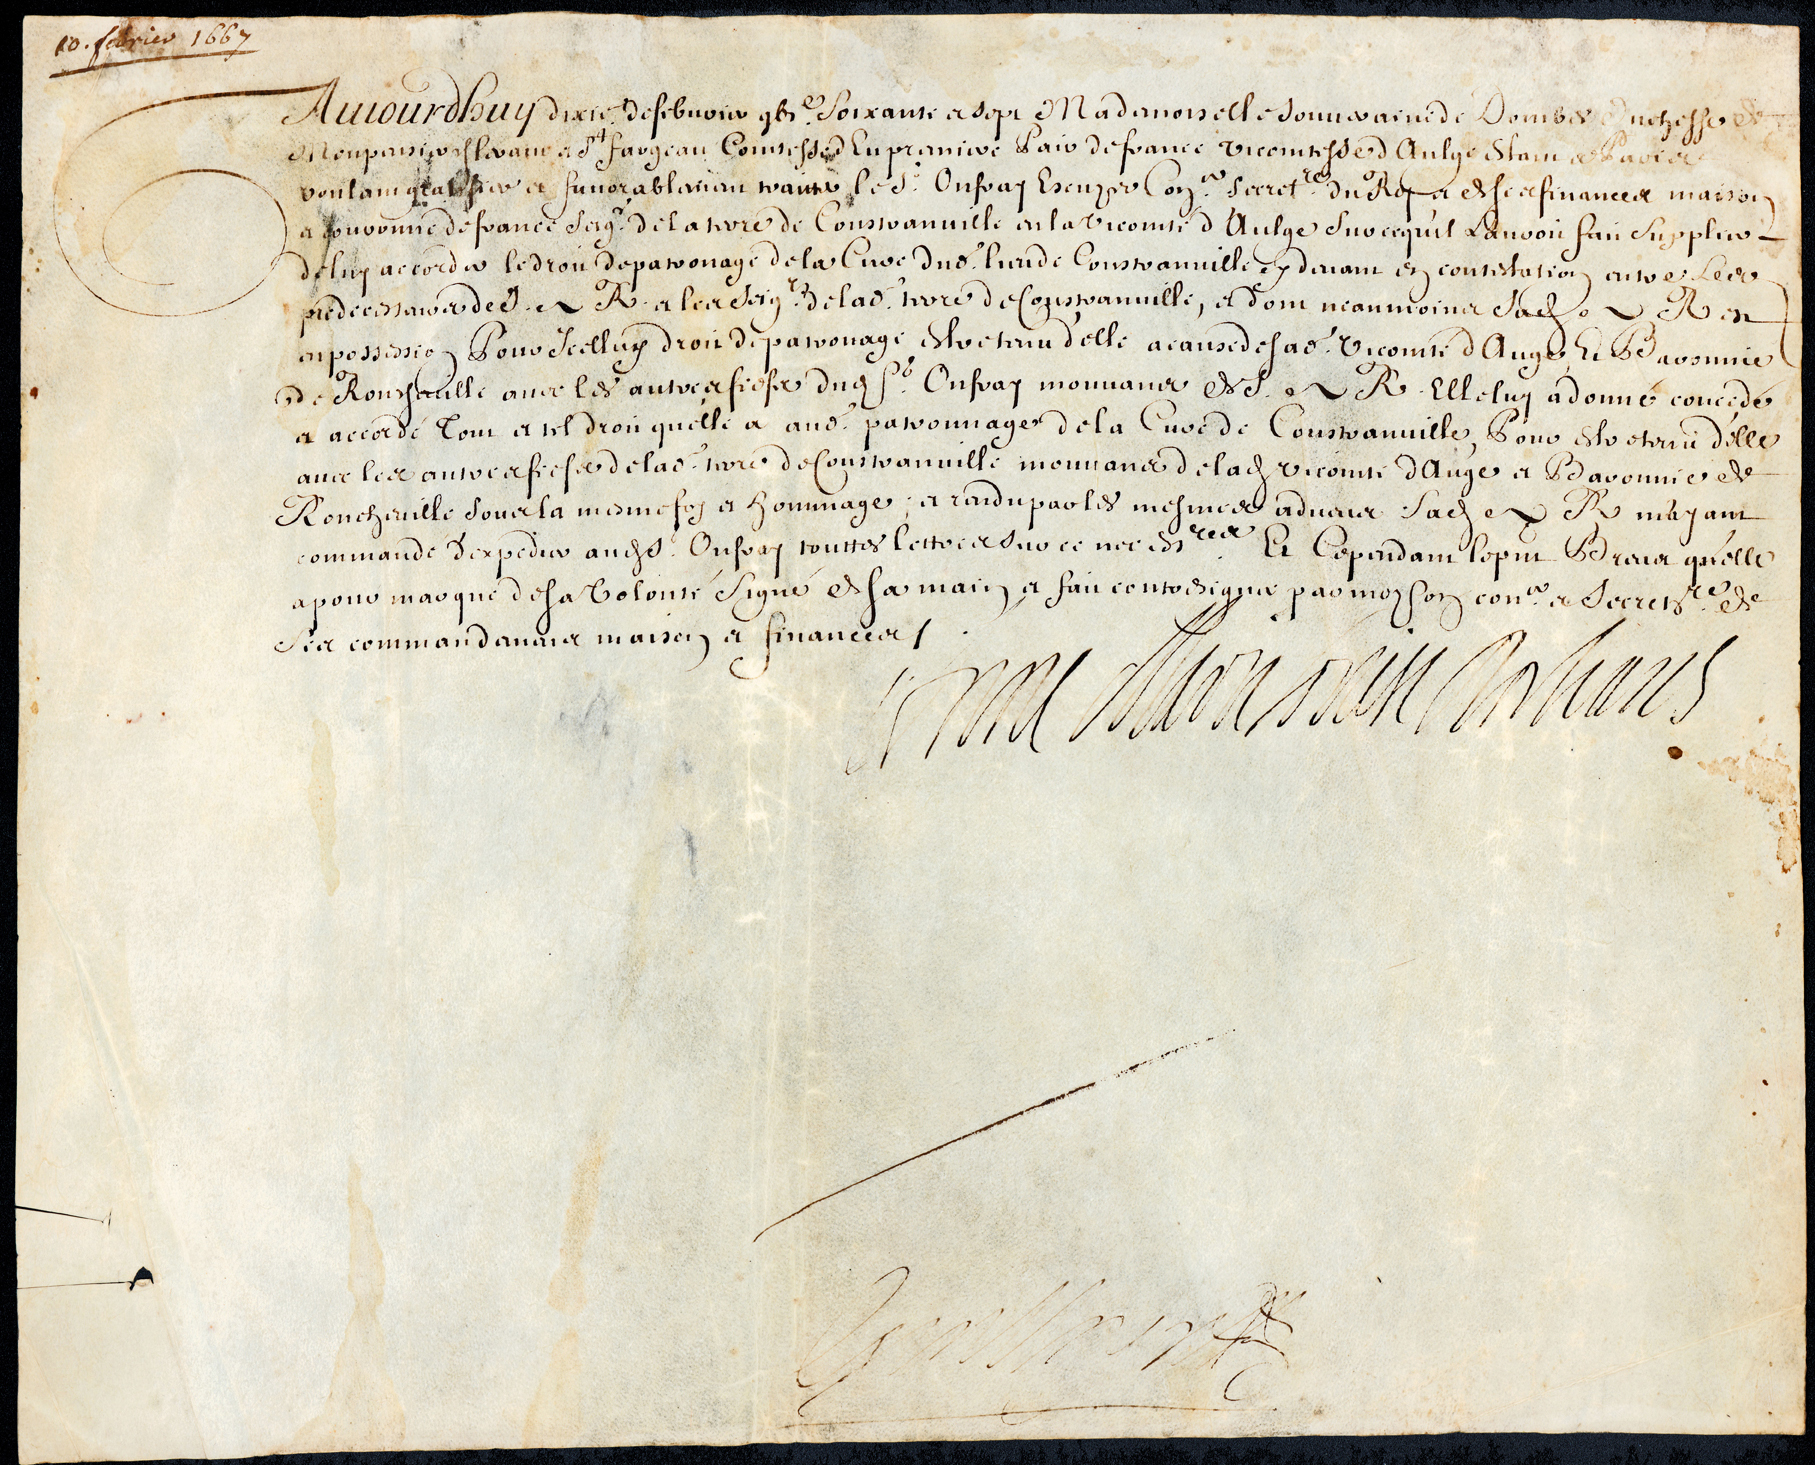 10. febvrier 1667
Auiourdhuy dixie. de febvrier gbic. Soixante et sept Mademoiselle souveraine de Dombes Duchesse de
Monpensier et St fargeau Comtesse d'Eu premiere Pair de france vicomtesse d'Aulge estant a Paris et
voulant gratifier et favorablement traitter le Sr. Onfray Escuyer Conr. Secretre. du Roy et de ses finances maison
et couronne de france seigr. de la terre de Coustranville en la vicomté d'Aulge sur ce qu'il l'auroit fait supplier
de luy accorder le droit de patronage de la Cure dud. lieu de Coustranville cy devant en contestation entre les
predecesseurs de S. A. R. et les seigrs. de lad. terre de Coustranville, et dont neanmoins Sad. A. R. est
en possession Pour Icelluy droit de patronage estre tenu d'elle a cause de sad. vicomté d'Auge, Et Baronnie
de Roncheville avec les autres fiefs dud. Sr. Onfray mouvans de S. A. R. Elle luy a donné concedé
et accordé Tout et tel droit qu'elle a aud. patronnage de la Cure de Coustranville, Pour estre tenu d'elle
avec les autres fiefs de lad. terre de Coustranville mouvans de lad. vicomté d'Auge et Baronnie de
Roncheville sous la mesme foy et hommage, et rendu par les mesmes adveux Sad. A. R. m'ayant
commandé d'expedier aud. S. Onfray touttes lettres sur ce necessres. Et Cependant le pnt Brevet qu'elle
a pour marque de sa volonté Signé de sa main et fait contresigner par moy son conr. et Secretre. de
Ses commandemens maison et finances /.
Anne Marie Louise d'Orleans